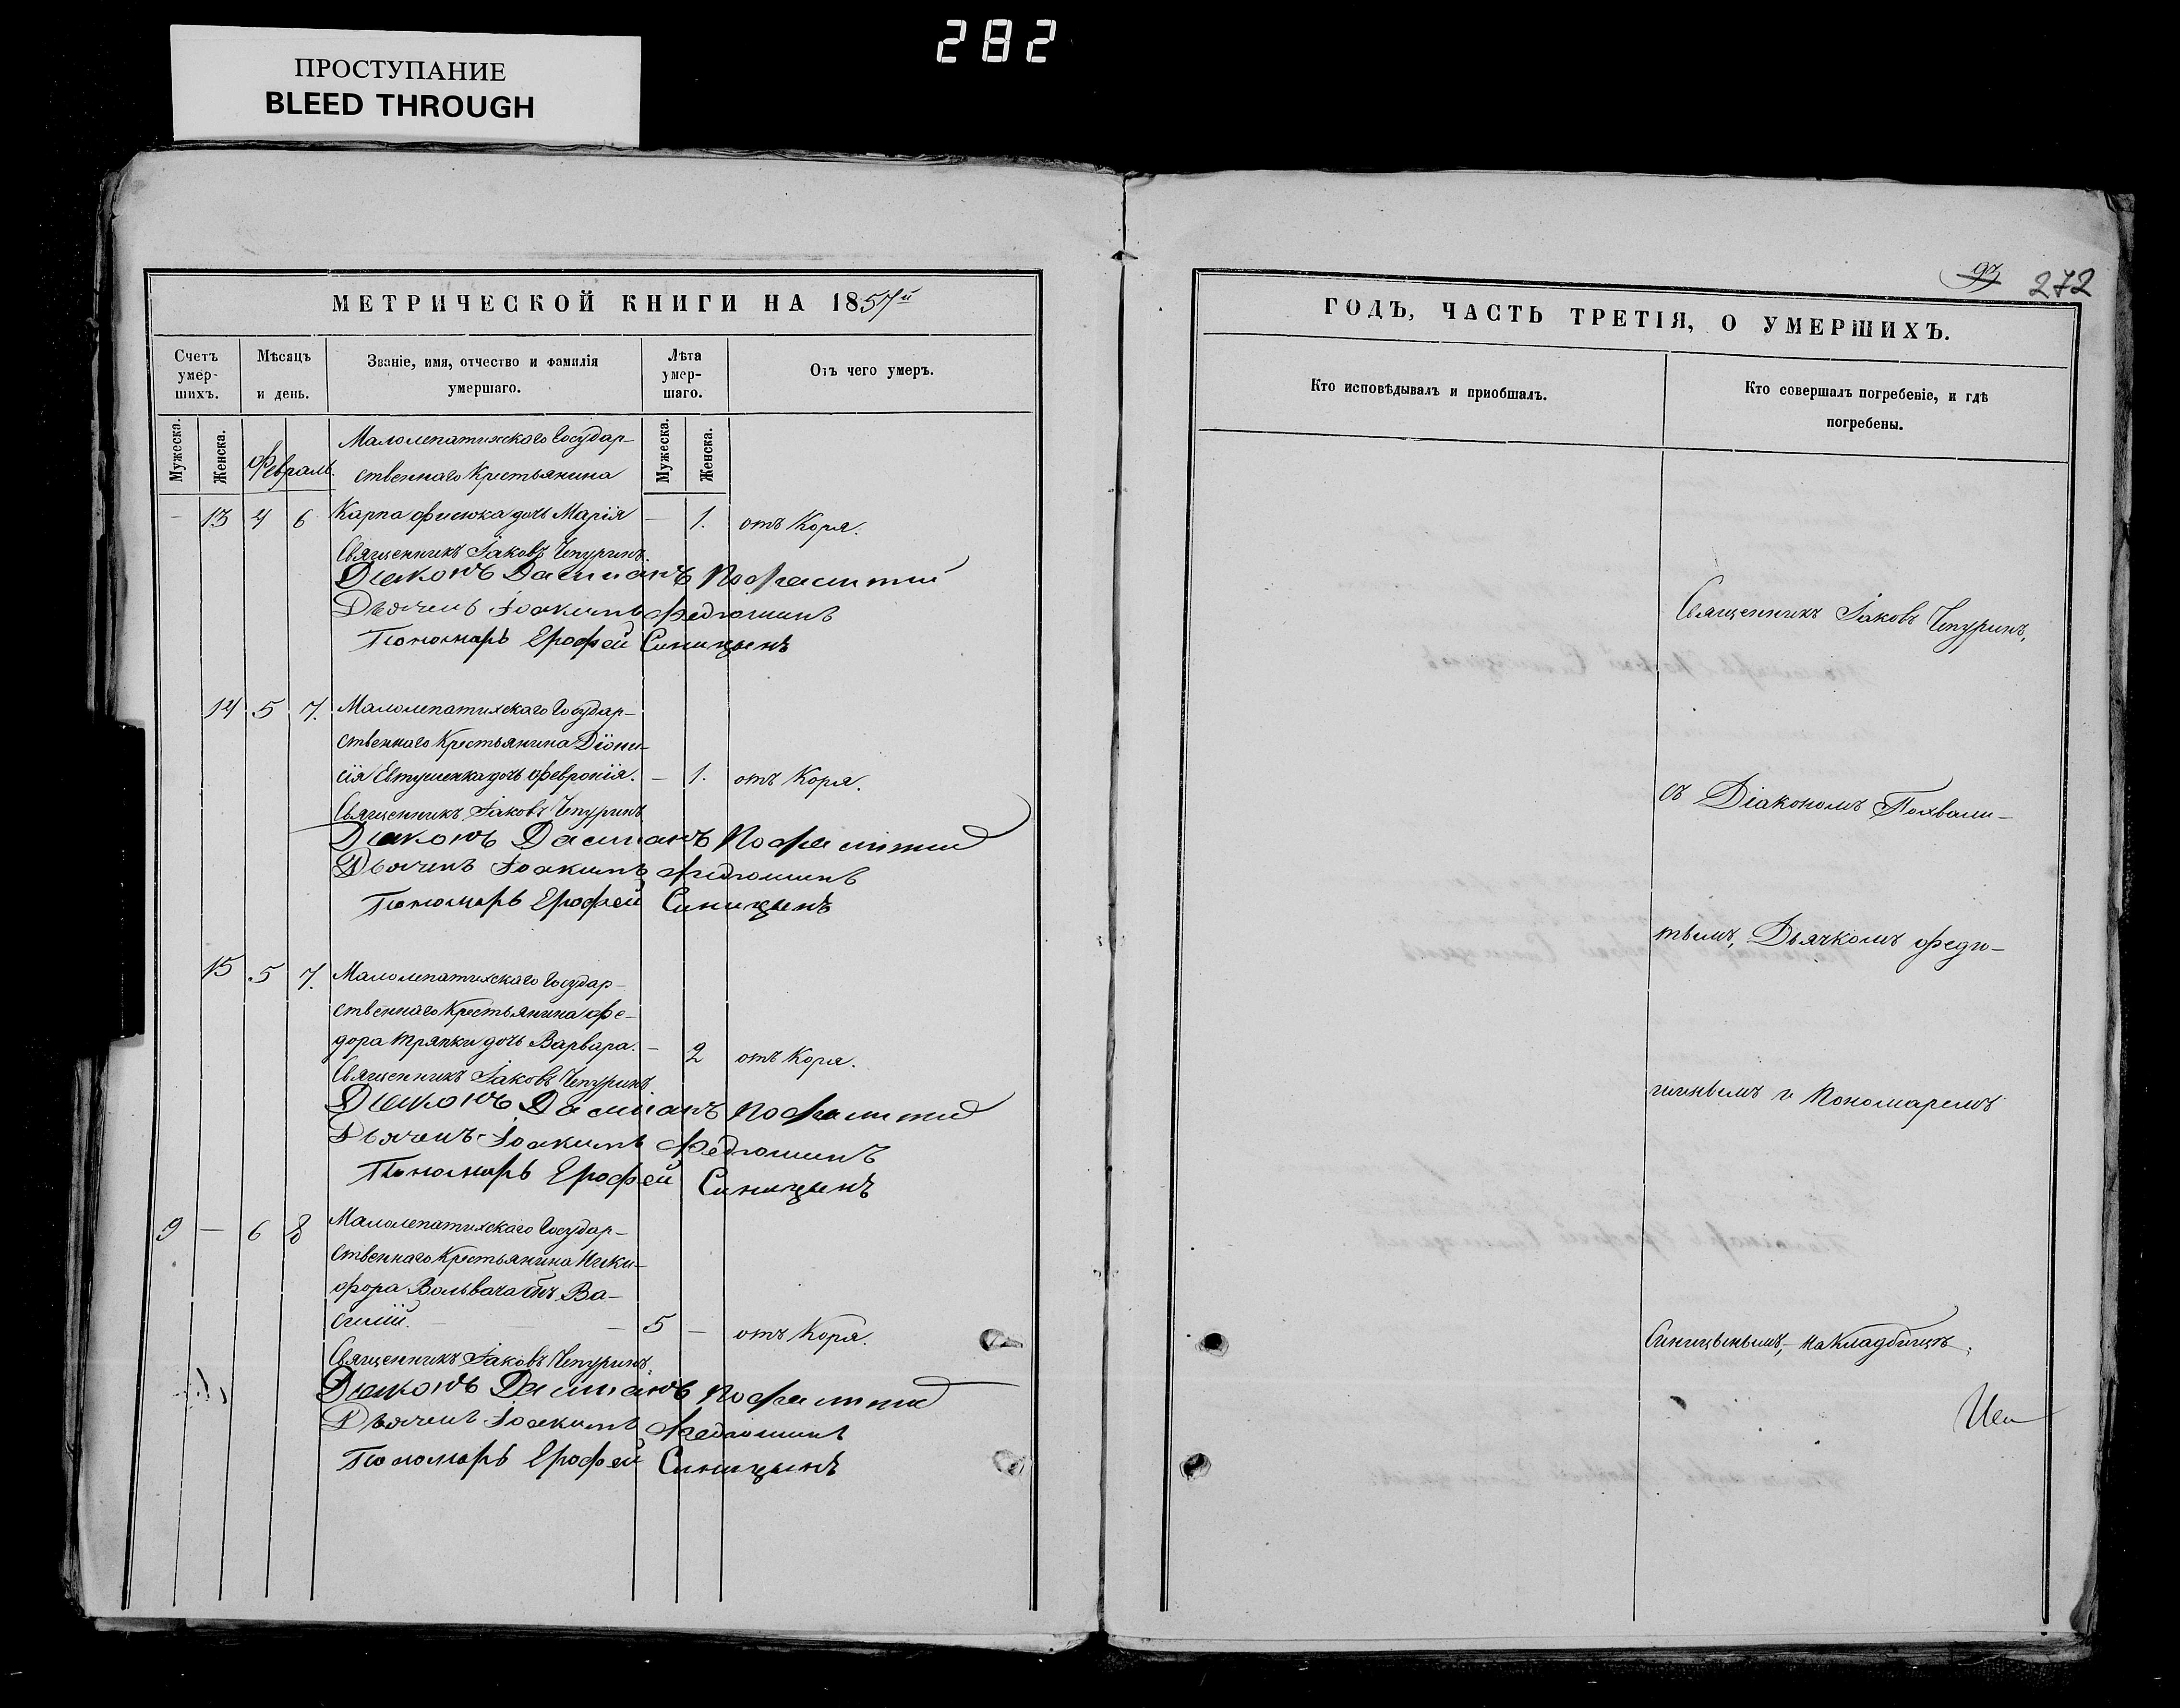 282
ПРОСТУПАНИЕ
BLEED THROUGH
МЕТРИЧЕСКОЙ КНИГИ НА 1857й
Счетъ умер-шихъ.
Мѣсяцъ и день.
Званіе, имя, отчество и фамилія умершаго.
Лѣта умер-шаго.
Отъ чего умеръ.
Мужеска.
Женска.
Февраль.
Мужеска.
Женска.
Малолепатихскаго Государ-
ственнаго Крестьянина
— 13 4 6 Карпа Фисюка дочь Марія — 1. отъ Коря.
Священникъ Іаковъ Чепуринъ.
Діаконъ Даміанъ Похвалитій
Дьячекъ Іоакимъ Федюшинъ
Пономарь Ерофей Синицынъ
14 5 7. Малолепатихскаго Государ-
ственнаго Крестьянина Діони-
сія Евтушенка дочь Февронія. — 1. отъ Коря.
Священникъ Іаковъ Чепуринъ
Діаконъ Даміанъ Похвалитій
Дьячекъ Іоакимъ Федюшинъ
Пономарь Ерофей Синицынъ
15 5 7. Малолепатихскаго Государ-
ственнаго Крестьянина Фе-
дора Тряпки дочь Варвара. — 2 отъ Коря.
Священникъ Іаковъ Чепуринъ
Діаконъ Даміанъ Похвалитій
Дьячекъ Іоакимъ Федюшинъ
Пономарь Ерофей Синицынъ
9 — 6 8 Малолепатихскаго Государ-
ственнаго Крестьянина Ники-
фора Вольвача сынъ Ва-
силій. — 5 — отъ Коря.
Священникъ Іаковъ Чепуринъ.
Діаконъ Даміанъ Похвалитій
Дьячекъ Іоакимъ Федюшинъ
Пономарь Ерофей Синицынъ
272
ГОДЪ, ЧАСТЬ ТРЕТІЯ, О УМЕРШИХЪ.
Кто исповѣдывалъ и пріобщалъ.
Кто совершалъ погребеніе, и гдѣ
погребены.
Священникъ Іаковъ Чепуринъ,
съ Діакономъ Похвали-
тымъ, Дьячкомъ Федю-
шинымъ и Пономаремъ
Синицынымъ, на Кладбищѣ.